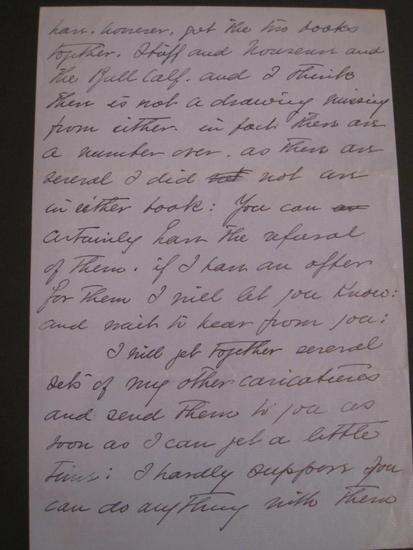 have. however, got the two books
together. Stuff and Nonsense and
the Bull Calf. and I think
there is not a drawing missing
from either. in fact there are
a number over. as there are
several I did not not use
in either book: You can as
certainly have the refusal
of them. if I have an offer
for them I will let you know:
and wait to hear from you:
I will get together several
sets of my other caricatures
and send them to you as
soon as I can get a little
time: I hardly suppose you
can do anything with them